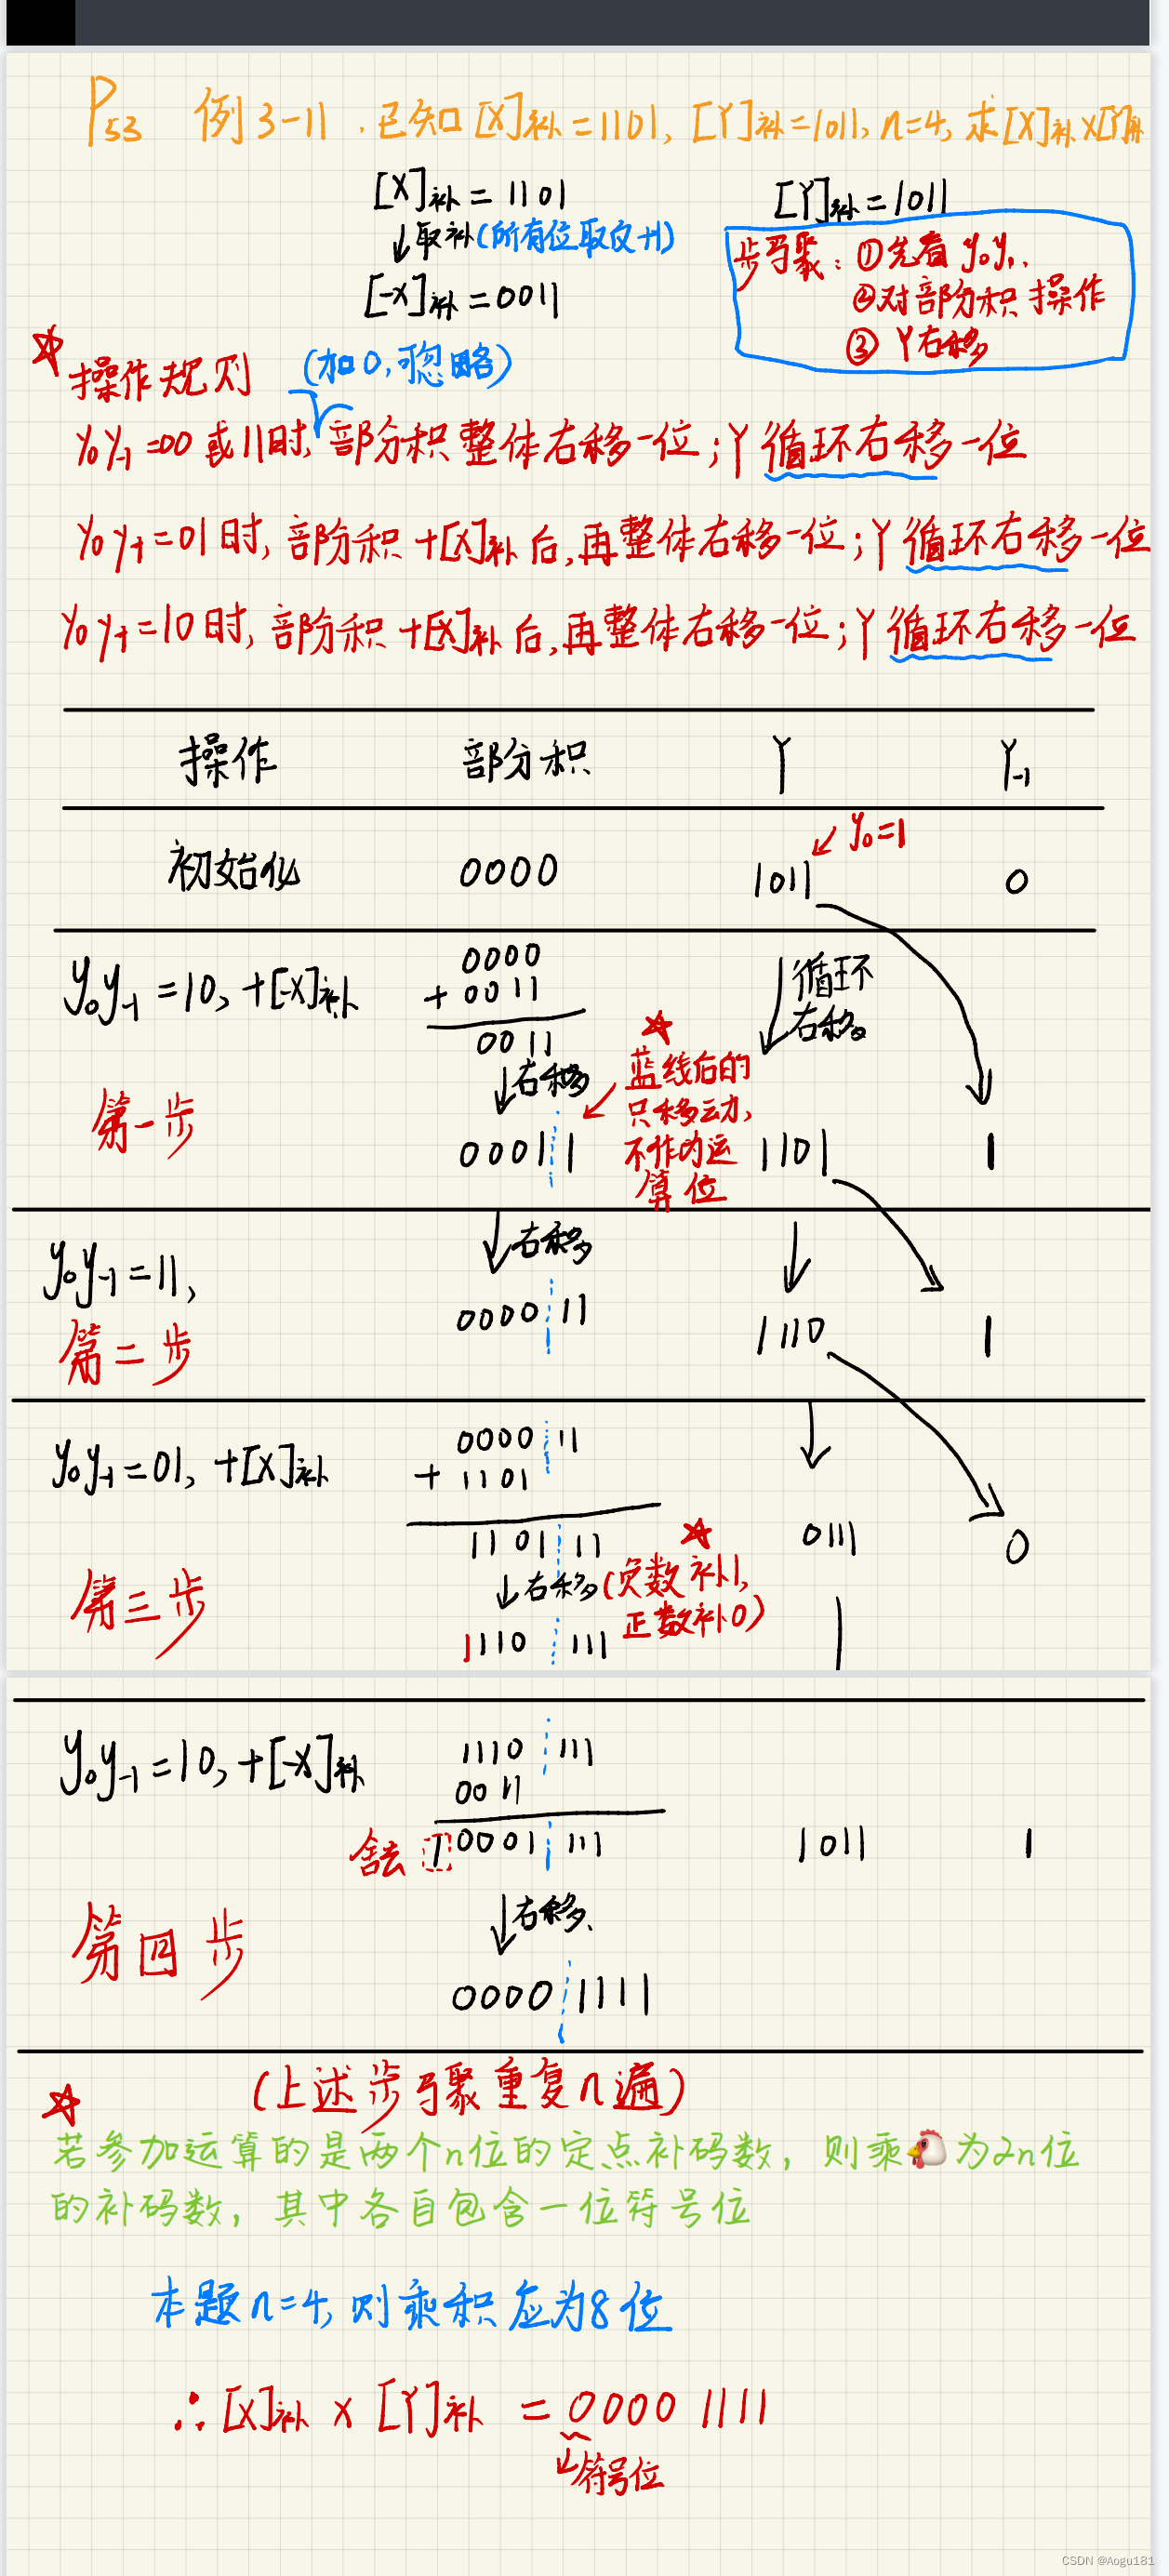 P53 例3-11.已知[X]补=1101,[Y]补=1011,n=4,求[X]补×[Y]补
[X]补=1101
↓取补(所有位取反+1)
[-X]补=0011
[Y]补=1011
步骤:①先看y₀y₋₁.
②对部分积操作
③Y右移
☆操作规则
(加0,可忽略)
y₀y₋₁=00或11时,部分积整体右移一位;Y循环右移一位
y₀y₋₁=01时,部分积+[X]补后,再整体右移一位;Y循环右移一位
y₀y₋₁=10时,部分积+[-X]补后,再整体右移一位;Y循环右移一位
操作 部分积 Y Y₋₁
y₀=1
初始化 0000 1011 0
y₀y₋₁=10,+[-X]补
0000
+0011
0011
↓右移
0001 1
第一步
☆
蓝线后的
只移动,
不作为运
算位
循环
右移
1101 1
y₀y₋₁=11,
第二步
↓右移
0000 11
1110 1
y₀y₋₁=01,+[X]补
第三步
0000 11
+1101
1101 11
↓右移(负数补1,
正数补0)
☆
1110 111
0111 0
y₀y₋₁=10,+[-X]补
1110 111
0011
舍去 1 0001 111
1011 1
第四步
↓右移、
0000 1111
☆ (上述步骤重复n遍)
若参加运算的是两个n位的定点补码数,则乘🐔为2n位
的补码数,其中各自包含一位符号位
本题n=4,则乘积应为8位
∴[X]补×[Y]补=0000 1111
↓符号位
CSDN @Aogu181